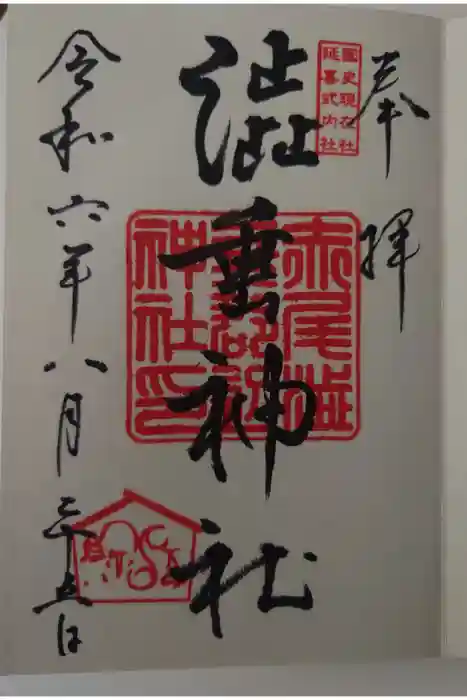 奉拝
國史現在社
延喜式内社
澁垂神社
赤尾澁
垂郡邊
神社印
令和六年八月二十五日